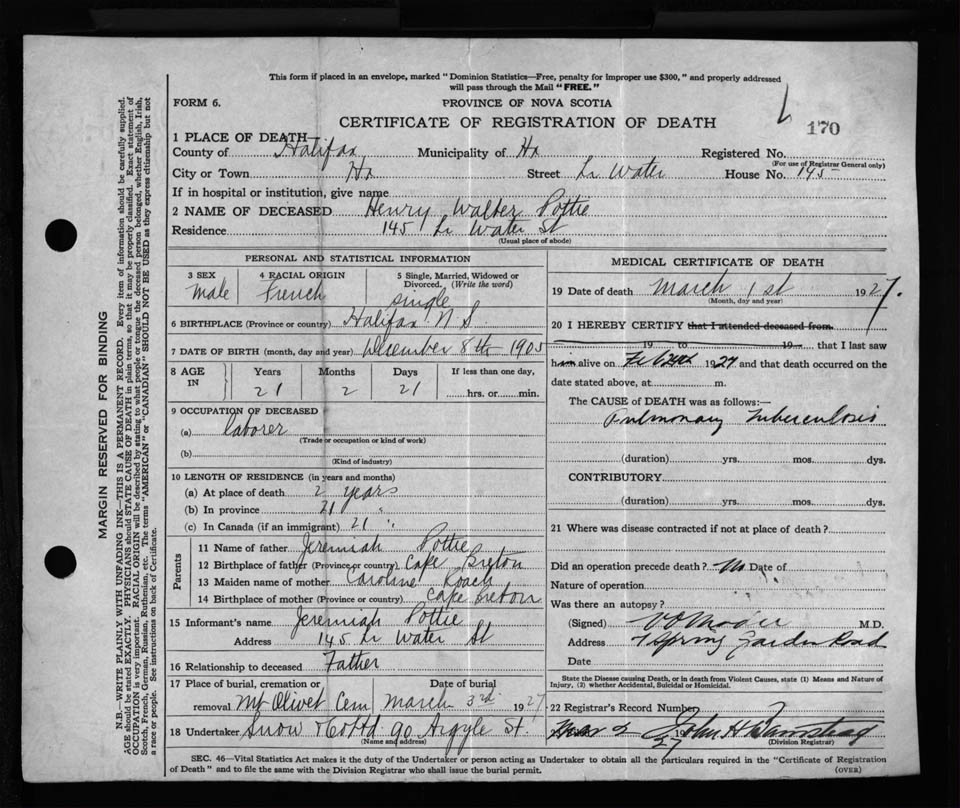 This form if placed in an envelope, marked "Dominion Statistics—Free, penalty for improper use $300," and properly addressed
will pass through the Mail "FREE."
FORM 6.
PROVINCE OF NOVA SCOTIA
CERTIFICATE OF REGISTRATION OF DEATH
170
1 PLACE OF DEATH
County of Halifax Municipality of Hx Registered No.
(For use of Registrar General only)
City or Town Hx Street Lr Water House No. 145
If in hospital or institution, give name
2 NAME OF DECEASED Henry Walter Pottie
Residence 145 Lr Water St
(Usual place of abode)
PERSONAL AND STATISTICAL INFORMATION
3 SEX 4 RACIAL ORIGIN 5 Single, Married, Widowed or
Divorced. (Write the word)
Male French single
6 BIRTHPLACE (Province or country) Halifax N S
7 DATE OF BIRTH (month, day and year) December 8th 1905
8 AGE IN Years Months Days If less than one day,
21 2 21 hrs. or min.
9 OCCUPATION OF DECEASED
(a) laborer
(Trade or occupation or kind of work)
(b)
(Kind of industry)
10 LENGTH OF RESIDENCE (in years and months)
(a) At place of death 2 years
(b) In province 21 "
(c) In Canada (if an immigrant) 21 "
Parents
11 Name of father Jeremiah Pottie
12 Birthplace of father (Province or country) Cape Breton
13 Maiden name of mother Caroline Roach
14 Birthplace of mother (Province or country) Cape Breton
15 Informant's name Jeremiah Pottie
Address 145 Lr Water St
16 Relationship to deceased Father
17 Place of burial, cremation or Date of burial
removal Mt Olivet Cem March 3rd 1927
18 Undertaker Snow & Co Ltd 90 Argyle St.
(Name and address)
MEDICAL CERTIFICATE OF DEATH
19 Date of death March 1st 1927.
(Month, day and year)
20 I HEREBY CERTIFY that I attended deceased from
19 to 19 that I last saw
him alive on Feb 24th 1927 and that death occurred on the
date stated above, at m.
The CAUSE of DEATH was as follows:—
Pulmonary Tuberculosis
(duration) yrs. mos. dys.
CONTRIBUTORY.
(duration) yrs. mos. dys.
21 Where was disease contracted if not at place of death?
Did an operation precede death? No Date of
Nature of operation
Was there an autopsy?
(Signed) M.D.
Address 7 Spring Garden Road
Date
State the Disease causing Death, or in death from Violent Causes, state (1) Means and Nature of
Injury, (2) whether Accidental, Suicidal or Homicidal.
22 Registrar's Record Number
Mar 2 1927 John H Barnstead
(Division Registrar)
SEC. 46—Vital Statistics Act makes it the duty of the Undertaker or person acting as Undertaker to obtain all the particulars required in the "Certificate of Registration
of Death" and to file the same with the Division Registrar who shall issue the burial permit.
(OVER)
MARGIN RESERVED FOR BINDING
N.B.—WRITE PLAINLY WITH UNFADING INK—THIS IS A PERMANENT RECORD. Every item of information should be carefully supplied.
AGE should be stated EXACTLY. PHYSICIANS should STATE CAUSE OF DEATH in plain terms, so that it may be properly classified. Exact statement of
OCCUPATION is very important. RACIAL ORIGIN will be described by stating to what people or tongue the deceased person belonged, whether English, Irish,
Scotch, French, German, Russian, Ruthenian, etc. The terms "AMERICAN" or "CANADIAN" SHOULD NOT BE USED as they express citizenship but not
a race or people. See instructions on back of Certificate.